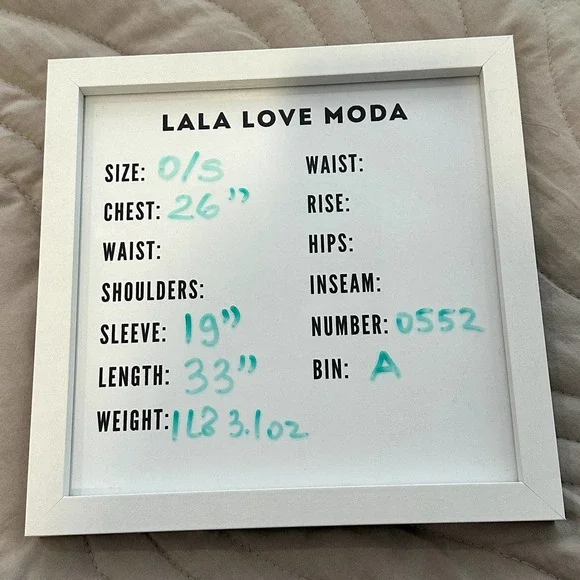 LALA LOVE MODA
SIZE: O/S
CHEST: 26"
WAIST:
SHOULDERS:
SLEEVE: 19"
LENGTH: 33"
WEIGHT: 1LB 3.1oz
WAIST:
RISE:
HIPS:
INSEAM:
NUMBER: 0552
BIN: A